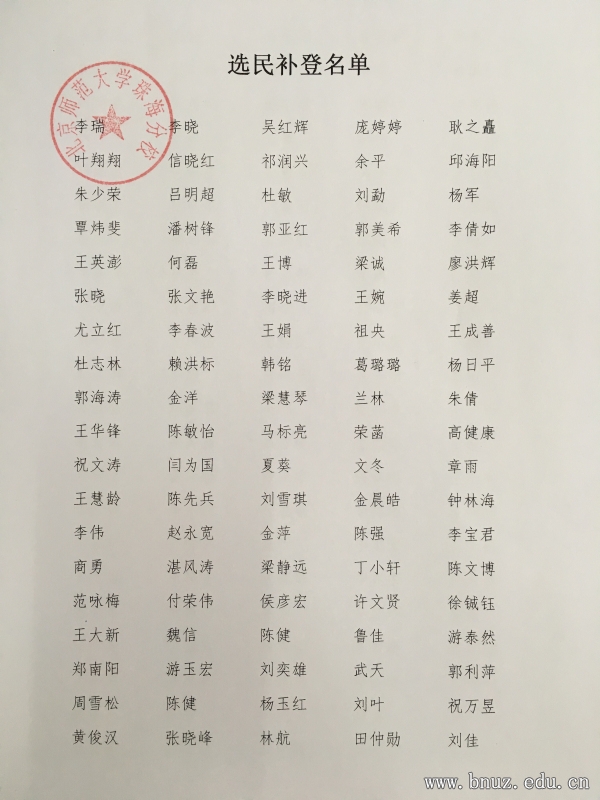 选民补登名单
北京师范大学珠海分校
李瑞 李晓 吴红辉 庞婷婷 耿之矗
叶翔翔 信晓红 祁润兴 余平 邱海阳
朱少荣 吕明超 杜敏 刘勐 杨军
覃炜斐 潘树锋 郭亚红 郭美希 李倩如
王英澎 何磊 王博 梁诚 廖洪辉
张晓 张文艳 李晓进 王婉 姜超
尤立红 李春波 王娟 祖央 王成善
杜志林 赖洪标 韩铭 葛璐璐 杨日平
郭海涛 金洋 梁慧琴 兰林 朱倩
王华锋 陈敏怡 马标亮 荣菡 高健康
祝文涛 闫为国 夏葵 文冬 章雨
王慧龄 陈先兵 刘雪琪 金晨皓 钟林海
李伟 赵永宽 金萍 陈强 李宝君
商勇 湛风涛 梁静远 丁小轩 陈文博
范咏梅 付荣伟 侯彦宏 许文贤 徐铖钰
王大新 魏信 陈健 鲁佳 游泰然
郑南阳 游玉宏 刘奕雄 武天 郭利萍
周雪松 陈健 杨玉红 刘叶 祝万昱
黄俊汉 张晓峰 林航 田仲勋 刘佳
www.bnuz.edu.cn